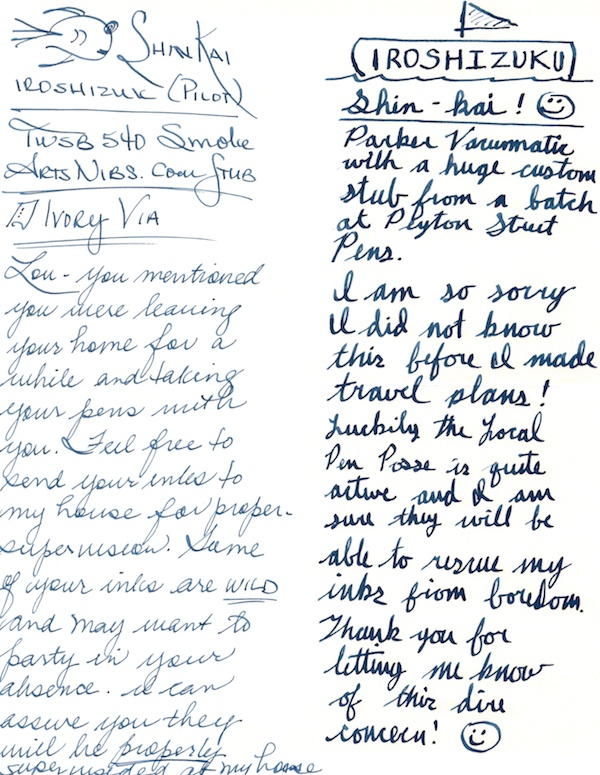 Shin Kai
IROSHIZUK (PILOT)
TWSB 540 Smoke
ArtsNibs.com Stub
Ivory Via
Lou - you mentioned
you were leaving
your home for a
while and taking
your pens with
you. Feel free to
send your inks to
my house for proper
supervision. Some
of your inks are WILD
and may want to
party in your
absence. I can
assure you they
will be properly
supervisided at my house
IROSHIZUKU
Shin-kai! ☺
Parker Vacummatic
with a huge custom
stub from a batch
at Peyton Street
Pens.
I am so sorry
I did not know
this before I made
travel plans!
Luckily the Local
Pen Posse is quite
active and I am
sure they will be
able to rescue my
inks from boredom.
Thank you for
letting me know
of this dire
concern! ☺